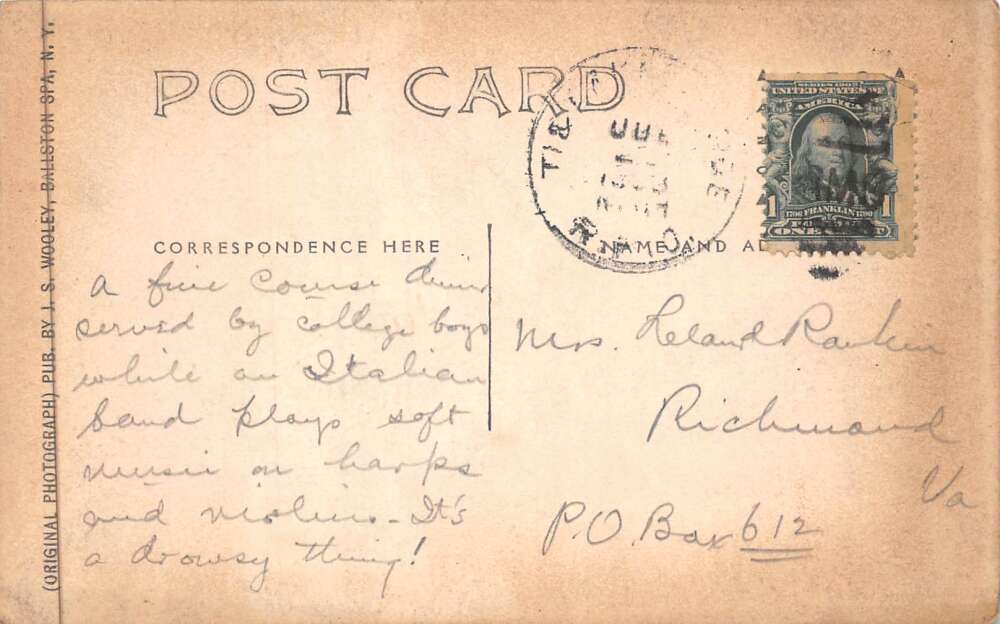 POST CARD
(ORIGINAL PHOTOGRAPH) PUB. BY J. S. WOOLEY, BALLSTON SPA, N. Y.
SERIES 1902
UNITED STATES OF
AMERICA
1706 FRANKLIN 1790
1 1
ONE
CORRESPONDENCE HERE
NAME AND AD
a fine course
served by college boys
while an Italian
band plays soft
music on harps
and violins - It's
a drowsy thing!
Mrs. Leland Rankin
Richmond
Va
P.O. Box 612